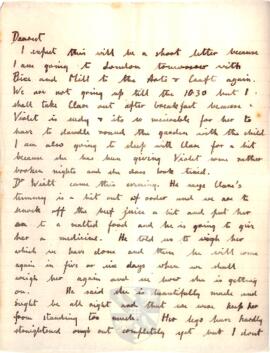 Dearest
I expect this will be a short letter because
I am going to London tomorrow with
Bice and Mill to the Arts & Craft again.
We are not going up till the 10.30 but I
shall take Clare out after breakfast because
Violet is seedy & its so miserable for her to
have to dawdle round the garden with the child
I am also going to sleep with Clare for a bit
because she has been giving Violet some rather
broken nights and she does look tired.
Dr Watt came this evening. He says Clare's
tummy is a bit out of order and we are to
knock off the beef juice a bit and put her
on to a malted food and he is going to give
her a medicine. He told us to weigh her
which we have done and then he will come
again in five or six days when we shall
weigh her again and see how she is getting
on. He said she is beautifully made and
ought be all right and that we must keep her
from standing too much. Her legs have hardly
straightened enough out completely yet but I dont